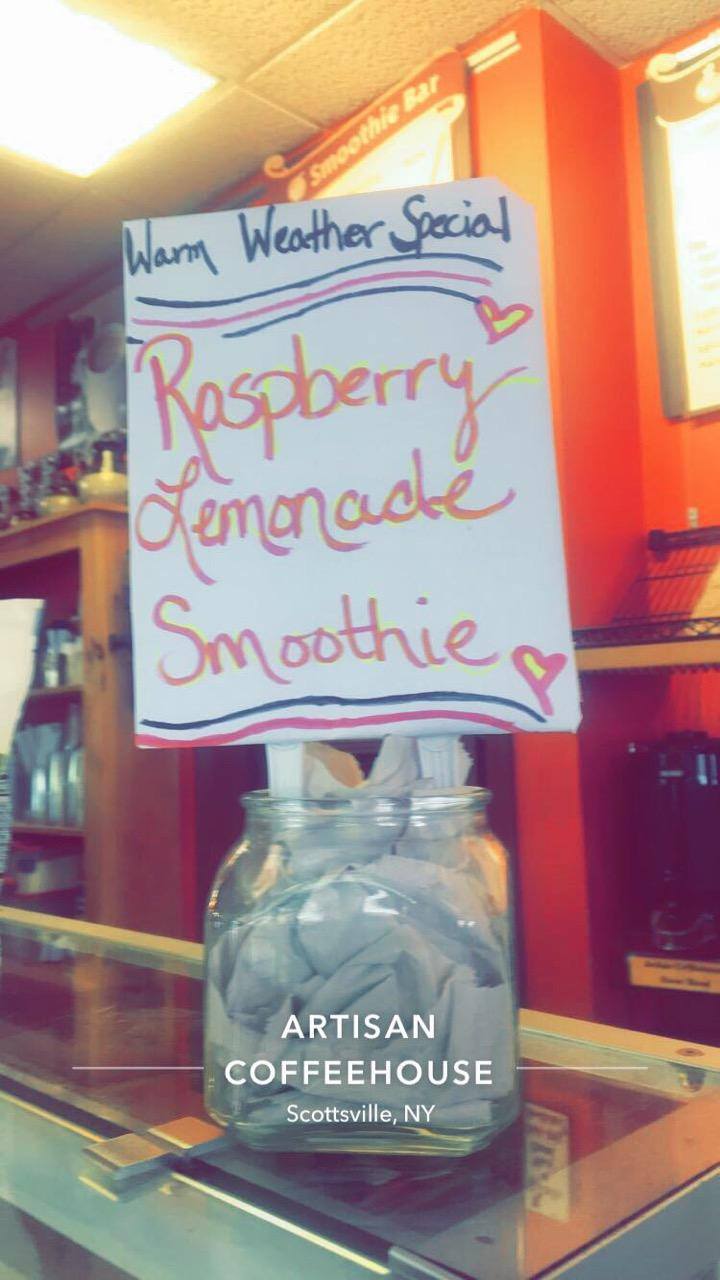 Smoothie Bar
Warm Weather Special
Raspberry
Lemonade
Smoothie
ARTISAN
COFFEEHOUSE
Scottsville, NY